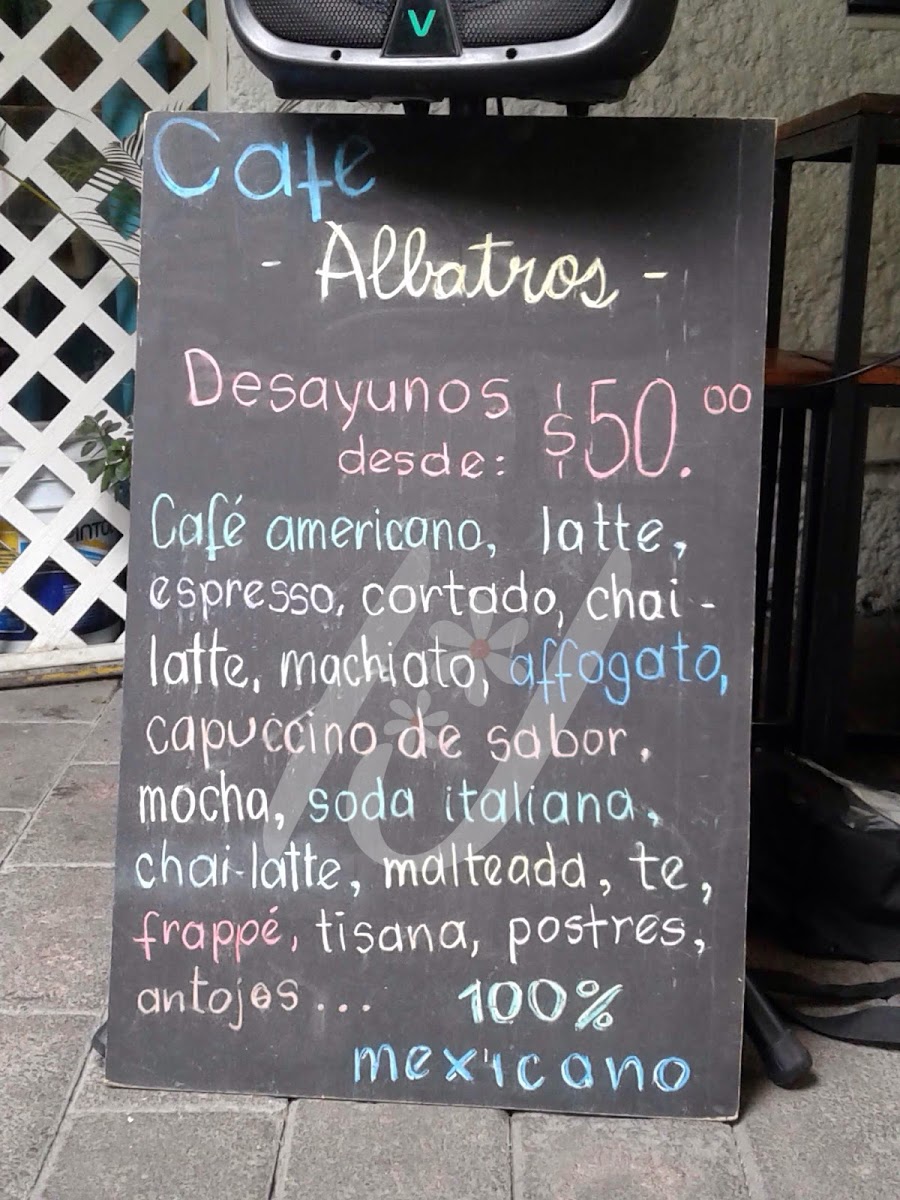 V
Cafe
- Albatros -
Desayunos $50.00
desde:
Café americano, latte,
espresso, cortado, chai-
latte, machiato, affogato,
capuccino de sabor,
mocha, soda italiana,
chai-latte, malteada, te,
frappé, tisana, postres,
antojos... 100%
mexicano